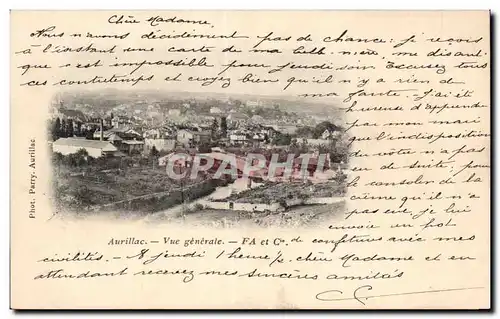 Chère Madame.
Nous n'avons décidément pas de chance; je reçois
à l'instant une carte de ma belle-mère, me disant
que c'est impossible pour jeudi soir. Excusez tous
ces contretemps et croyez bien qu'il n'y a rien de
ma faute. J'ai été
heureuse d'apprendre
par mon mari
que l'indisposition
de votre n'a pas
eu de suite, pour
le consoler de la
crème qu'il n'a
pas eue, je lui
envoie un pot
de confitures avec mes
civilités. - A jeudi 1 heure ½, chère Madame et en
attendant recevez mes sincères amitiés
Phot. Parry. Aurillac
CPA
Aurillac. - Vue générale. - FA et Cie.